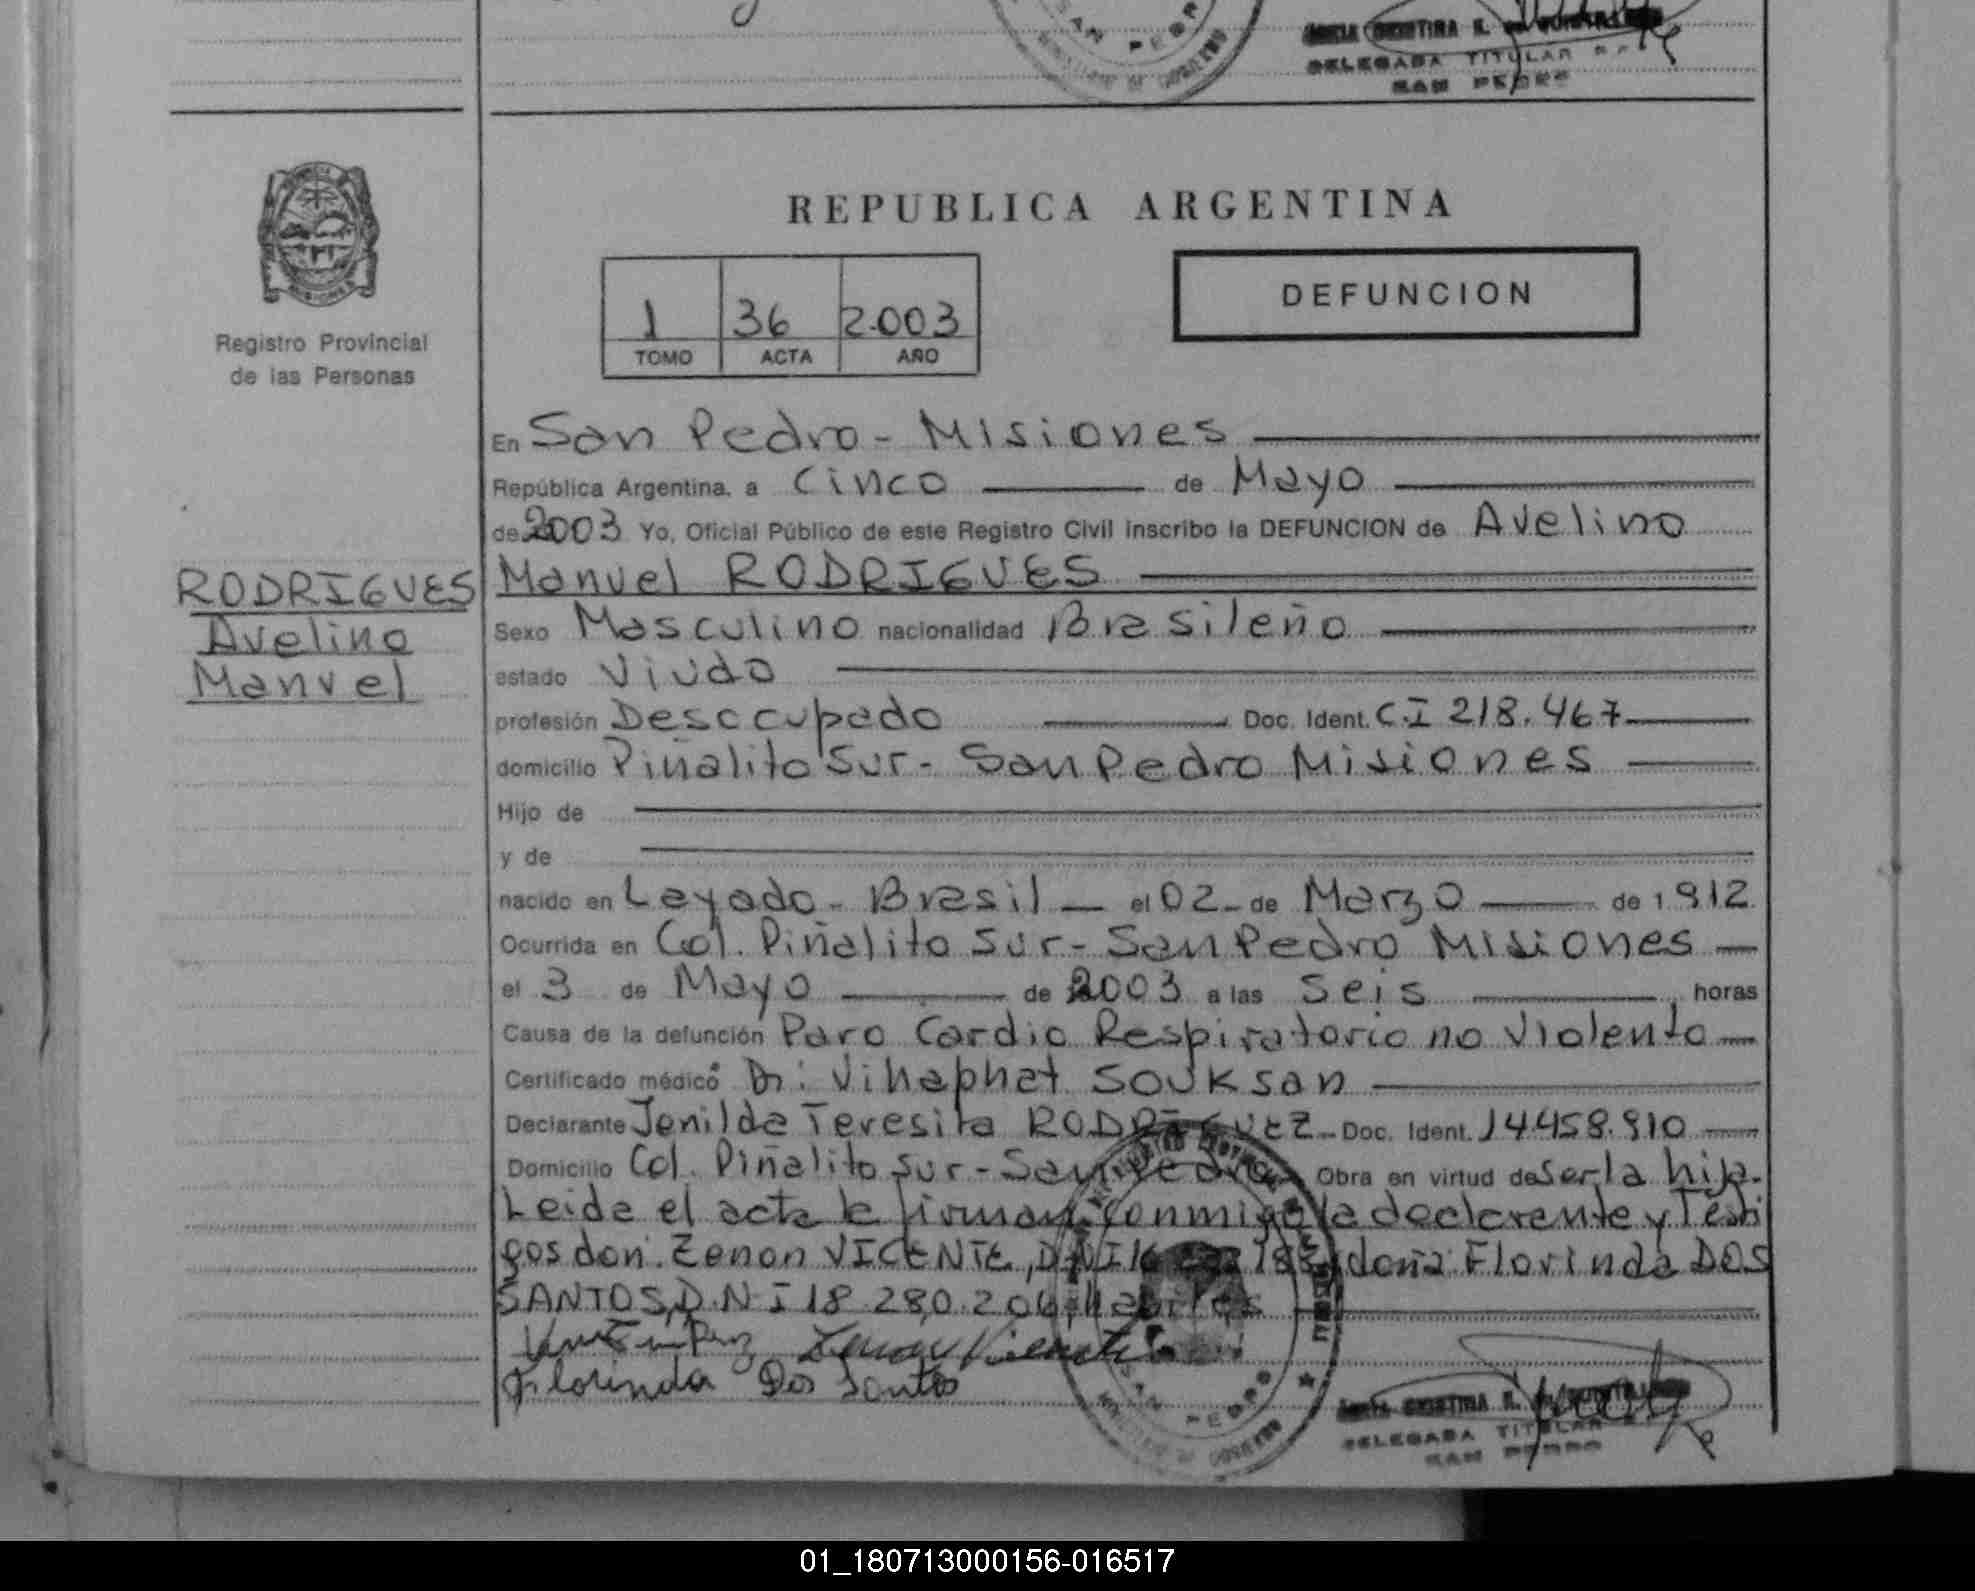 SAN PEDRO
DELEGADA TITULAR
SAN PEDRO
REPUBLICA ARGENTINA
DEFUNCION
1 36 2.003
TOMO ACTA AÑO
MISIONES
Registro Provincial
de las Personas
RODRIGUES
Avelino
Manuel
En San Pedro - Misiones
República Argentina, a Cinco de Mayo
de 2003 Yo, Oficial Público de este Registro Civil inscribo la DEFUNCION de Avelino
Manuel RODRIGUES
Sexo Masculino nacionalidad Brasileño
estado Viudo
profesión Desocupado Doc. Ident. C.I 218.467
domicilio Piñalito Sur - San Pedro Misiones
Hijo de
y de
nacido en Layado - Brasil el 02 de Marzo de 1912
Ocurrida en Col. Piñalito Sur - San Pedro Misiones
el 3 de Mayo de 2003 a las Seis horas
Causa de la defunción Paro Cardio Respiratorio no Violento
Certificado médico Dr: Vihaphat SOUKSAN
Declarante Jenilda Teresita RODRIGUEZ Doc. Ident. 14.458.910
Domicilio Col. Piñalito Sur - San Pedro Obra en virtud de Ser la hija.
Leida el acta la firman conmigo la declarante y Testi
gos don: Zenon VICENTE, D.N.I 16 y doña Florinda DOS
SANTOS, D.N.I 18.280.206, Habiles
Florinda Dos Santos
SAN PEDRO
DELEGADA TITULAR
SAN PEDRO
01_180713000156-016517